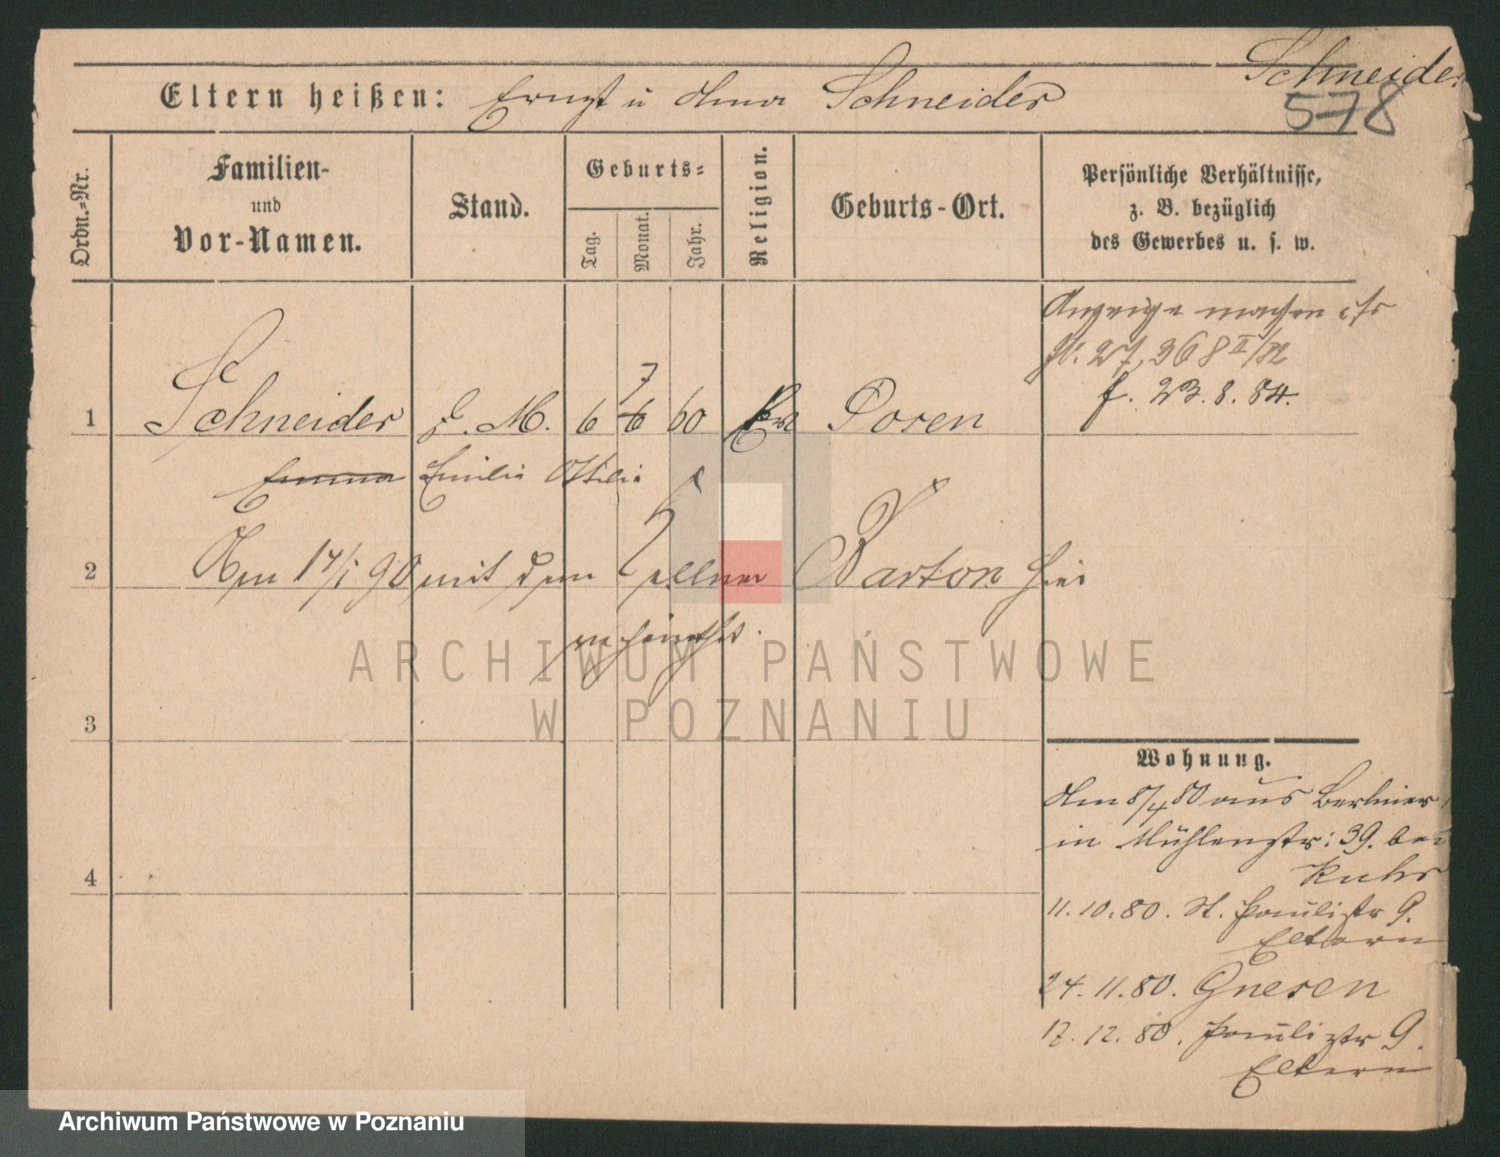 Schneider
578
Eltern heißen: Ernst u Anna Schneider
Ordn.-Nr.
Familien-
und
Vor-Namen.
Stand.
Geburts-
Tag.
Monat.
Jahr.
Religion.
Geburts-Ort.
Persönliche Verhältnisse,
z. B. bezüglich
des Gewerbes u. s. w.
Anzeige machen cfr
27,368 II/82
f. 23.8.84.
7
1 Schneider M. 6 6 60 Posen
Emma Emilie Ottilie
2 Am 17/1 90 mit dem Kellner Barton hier
verheirathet.
3
4
Wohnung.
Am 8/4 80 aus Berliner
in Mühlenstr: 39. bei
11.10.80. St. Paulistr 9.
Eltern
24.11.80. Gnesen
17.12.80. Paulistr 9.
Eltern
ARCHIWUM PAŃSTWOWE
W POZNANIU
Archiwum Państwowe w Poznaniu